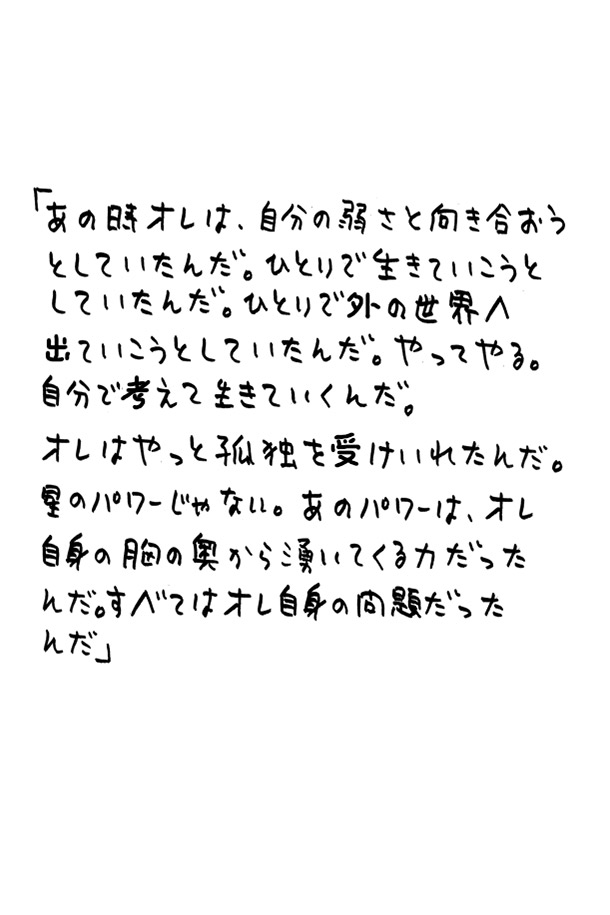 「あの時オレは、自分の弱さと向き合おう
としていたんだ。ひとりで生きていこうと
していたんだ。ひとりで外の世界へ
出ていこうとしていたんだ。やってやる。
自分で考えて生きていくんだ。
オレはやっと孤独を受けいれたんだ。
星のパワーじゃない。あのパワーは、オレ
自身の胸の奥から湧いてくる力だった
んだ。すべてはオレ自身の問題だった
んだ」